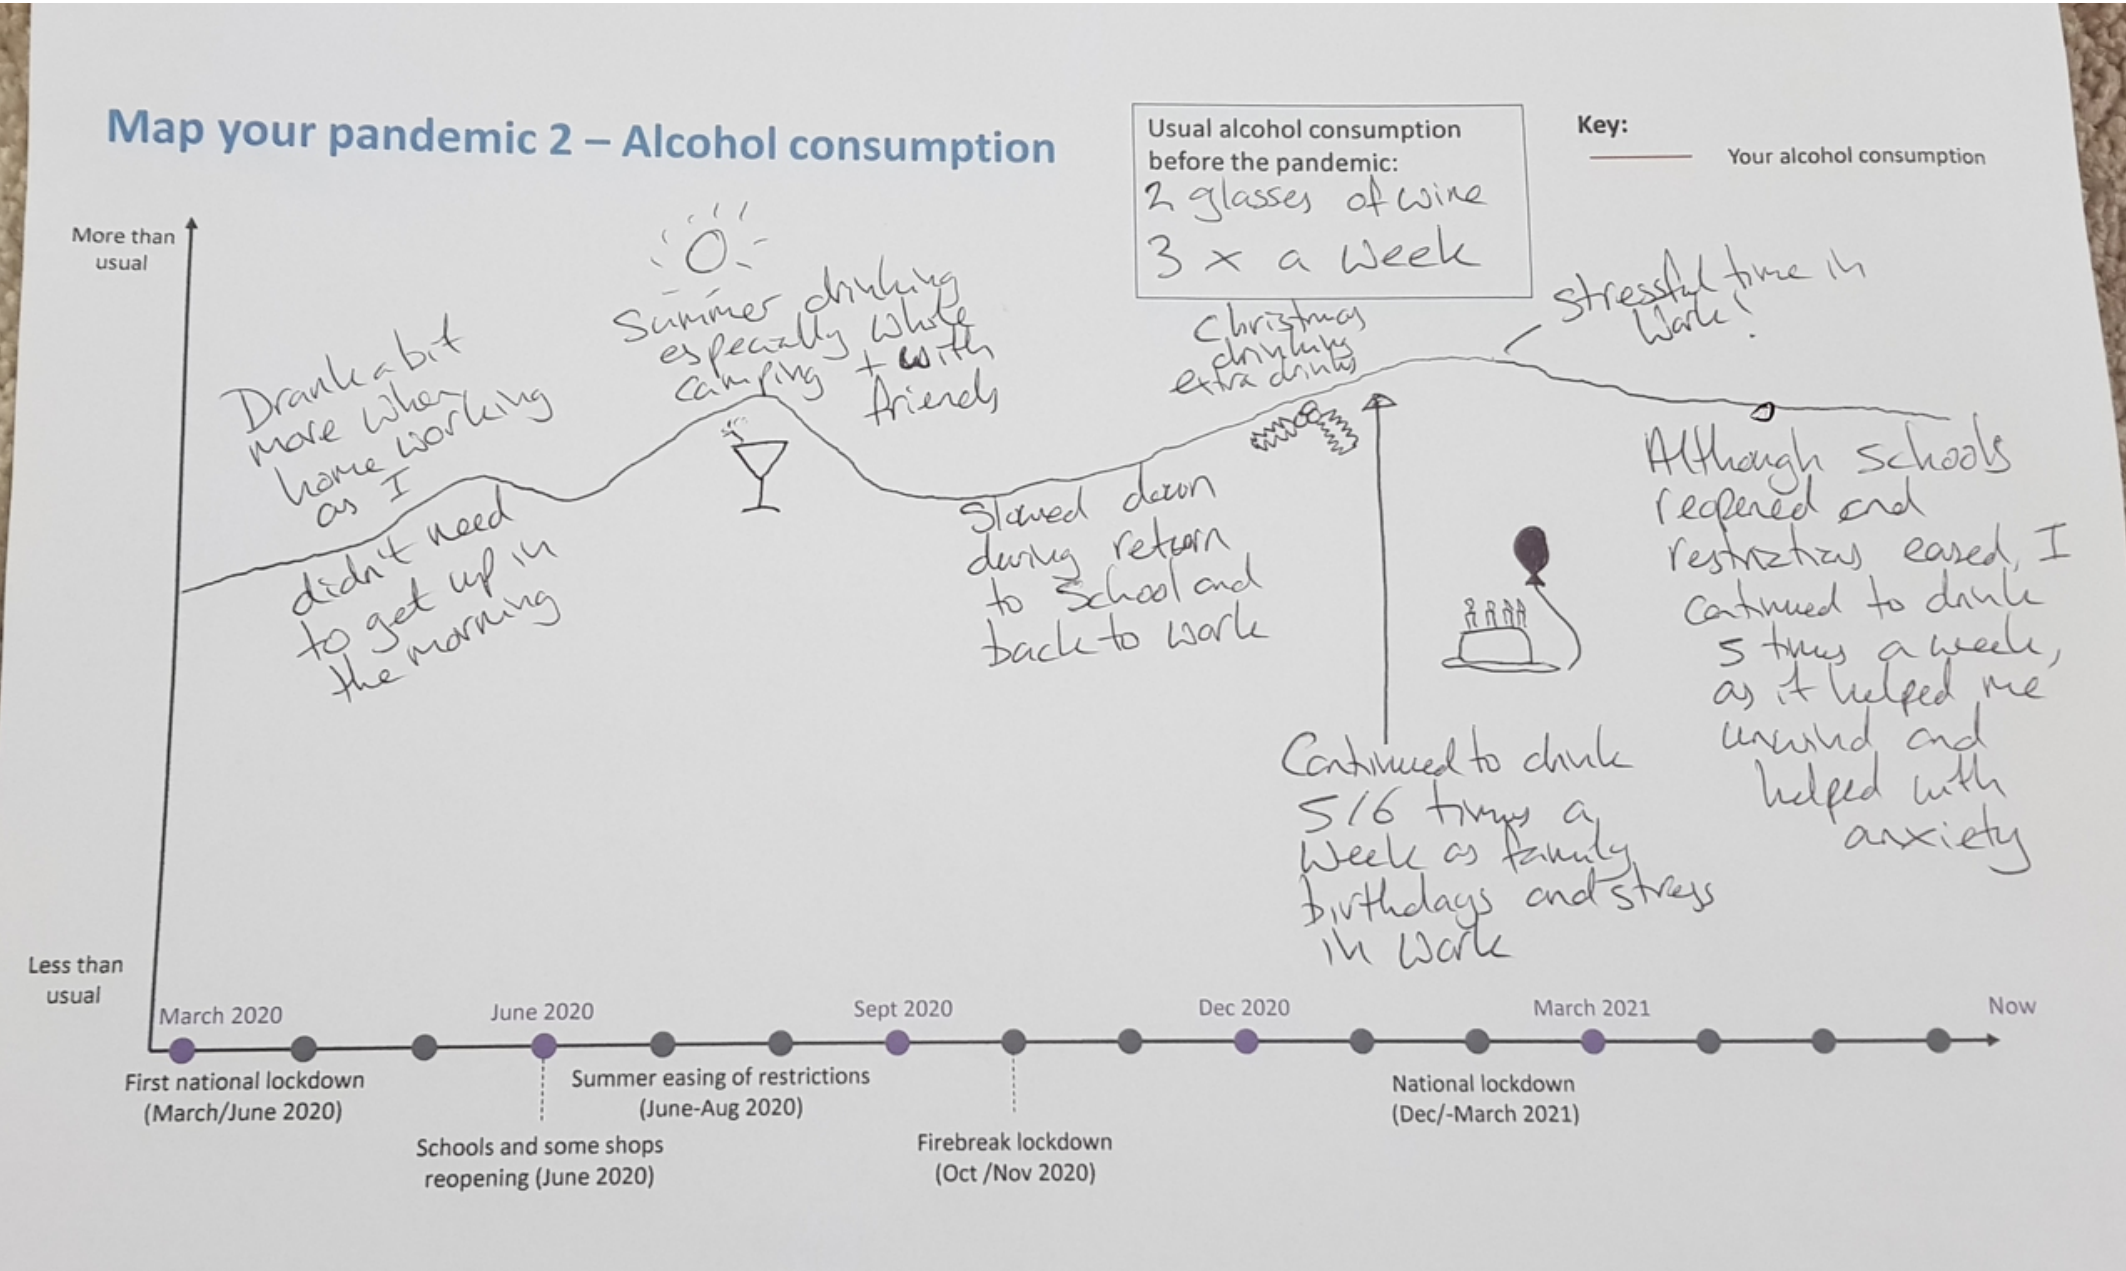 Map your pandemic 2 – Alcohol consumption
Usual alcohol consumption
before the pandemic:
2 glasses of wine
3 x a week
Key:
Your alcohol consumption
More than
usual
Drank a bit
more when
home working
as I
didn't need
to get up in
the morning
Summer drinking
especially while
camping + with
friends
Slowed down
during return
to school and
back to work
Christmas
drinking
extra drinks
Stressful time in
work!
Continued to drink
5/6 times a
week as family
birthdays and stress
in work
Although schools
reopened and
restrictions eased, I
continued to drink
5 times a week,
as it helped me
unwind and
helped with
anxiety
Less than
usual
March 2020
June 2020
Sept 2020
Dec 2020
March 2021
Now
First national lockdown
(March/June 2020)
Schools and some shops
reopening (June 2020)
Summer easing of restrictions
(June-Aug 2020)
Firebreak lockdown
(Oct /Nov 2020)
National lockdown
(Dec/-March 2021)